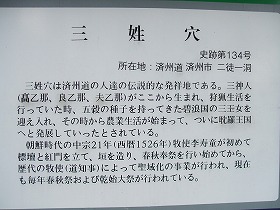 三姓穴
史跡第134号
所在地：済州道 済州市 二徒一洞
三姓穴は済州道の人達の伝説的な発祥地である。三神人
(高乙那、良乙那、夫乙那)がここから生まれ、狩猟生活を
行っていた時、五穀の種子を持ってきた碧浪国の三王女を
迎え入れ、その時から農業生活が始まって、ついに耽羅王国
へと発展していったとされている。
朝鮮時代の中宗21年(西暦1526年)牧使李寿童が初めて
標壇と紅門を立て、垣を造り、春秋奉祭を行い始めてから、
歴代の牧使(道知事)によって聖域化の事業が行われ、現在
も毎年春秋祭および乾始大祭が行われている。